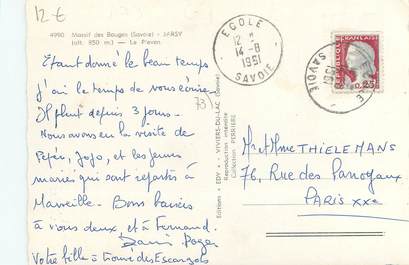 12 €
4990 Massif des Bauges (Savoie) - JARSY
(alt. 850 m.) — Le Pleven
Etant donné le beau temps
j'ai le temps de vous écrire.
Il pleut depuis 3 jours -
Nous avons eu la visite de
Pépée, Jojo, et les jeunes
mariés qui sont repartis à
Marseille - Bons baisers
à vous deux et à Fernand.
Roger
Votre fille a trouvé des Escargots
73
Editions « EDY » - VIVIERS-DU-LAC (Savoie)
Reproduction interdite
Collection PERRIERE
ECOLE
12 H
14-8
1961
SAVOIE
SAVOIE
0,25
Mr et Mme THIELEMANS
76, Rue des Panoyaux
PARIS XXe